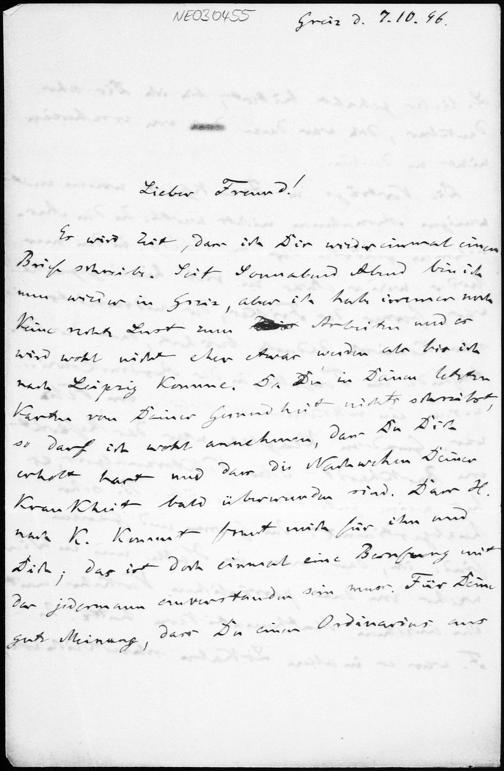 NE030455
Greiz d. 7.10.96.
Lieber Freund!
Es wird Zeit, dass ich Dir wieder einmal einen
Brief schreibe. Seit Sonnabend Abend bin ich
nun wieder in Greiz, aber ich habe immer noch
keine rechte Lust zum Arbeiten und es
wird wohl nicht eher etwas werden als bis ich
nach Leipzig komme. Da Du in Deinen letzten
Karten von Deiner Gesundheit nichts schreibst,
so darf ich wohl annehmen, dass Du Dich
erholt hast und dass die Nachwehen Deiner
Krankheit bald überwunden sind. Dass H.
nach K. kommt freut mich für ihn und
Dich; das ist doch einmal eine Berufung mit
der jedermann einverstanden sein muss. Für Deine
gute Meinung, dass Du einen Ordinarius aus